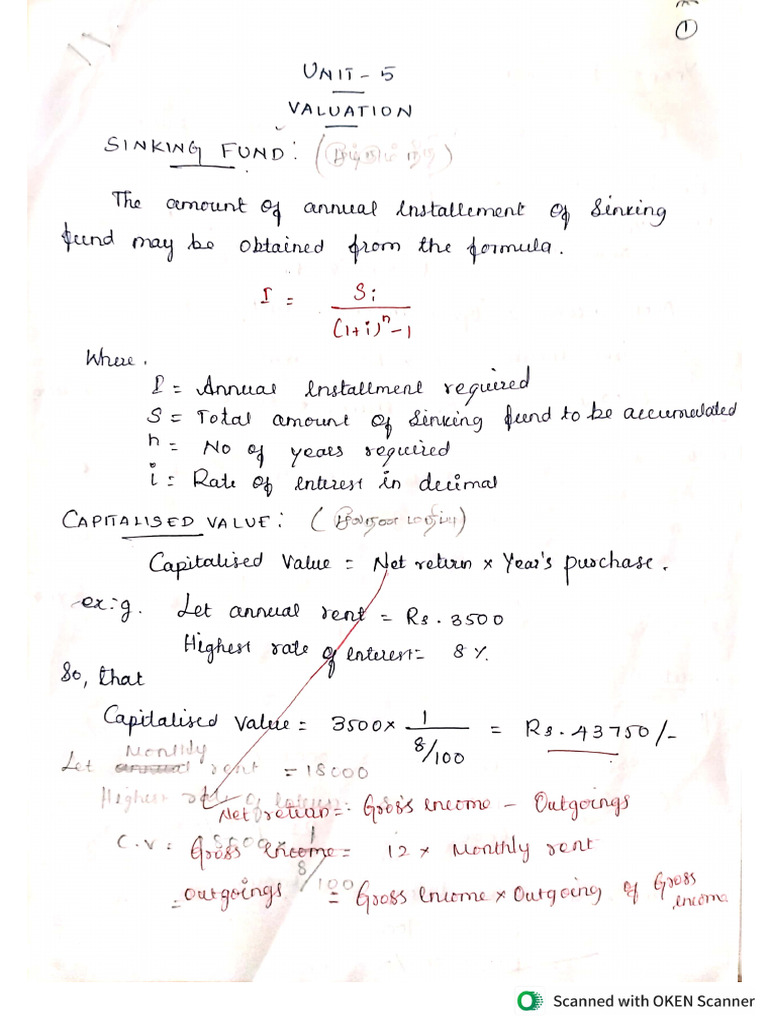 1
UNIT - 5
VALUATION
SINKING FUND :
The amount of annual installement of sinking
fund may be obtained from the formula.
I = Si / (1+i)^n - 1
Where,
I = Annual installment required
S = Total amount of sinking fund to be accumulated
n = No of years required
i = Rate of interest in decimal
CAPITALISED VALUE :
Capitalised value = Net return x Year's purchase.
ex:g. Let annual rent = Rs. 3500
Highest rate of interest = 8 %
So, that
Capitalised value = 3500 x 1 / 8/100 = Rs. 43750/-
Let annual Monthly rent = 18000
Highest rate of interest
Net return = Gross income - Outgoings
C.V = 1 / 8/100
Gross income = 12 x Monthly rent
= outgoings = Gross income x Outgoing of Gross income
Scanned with OKEN Scanner